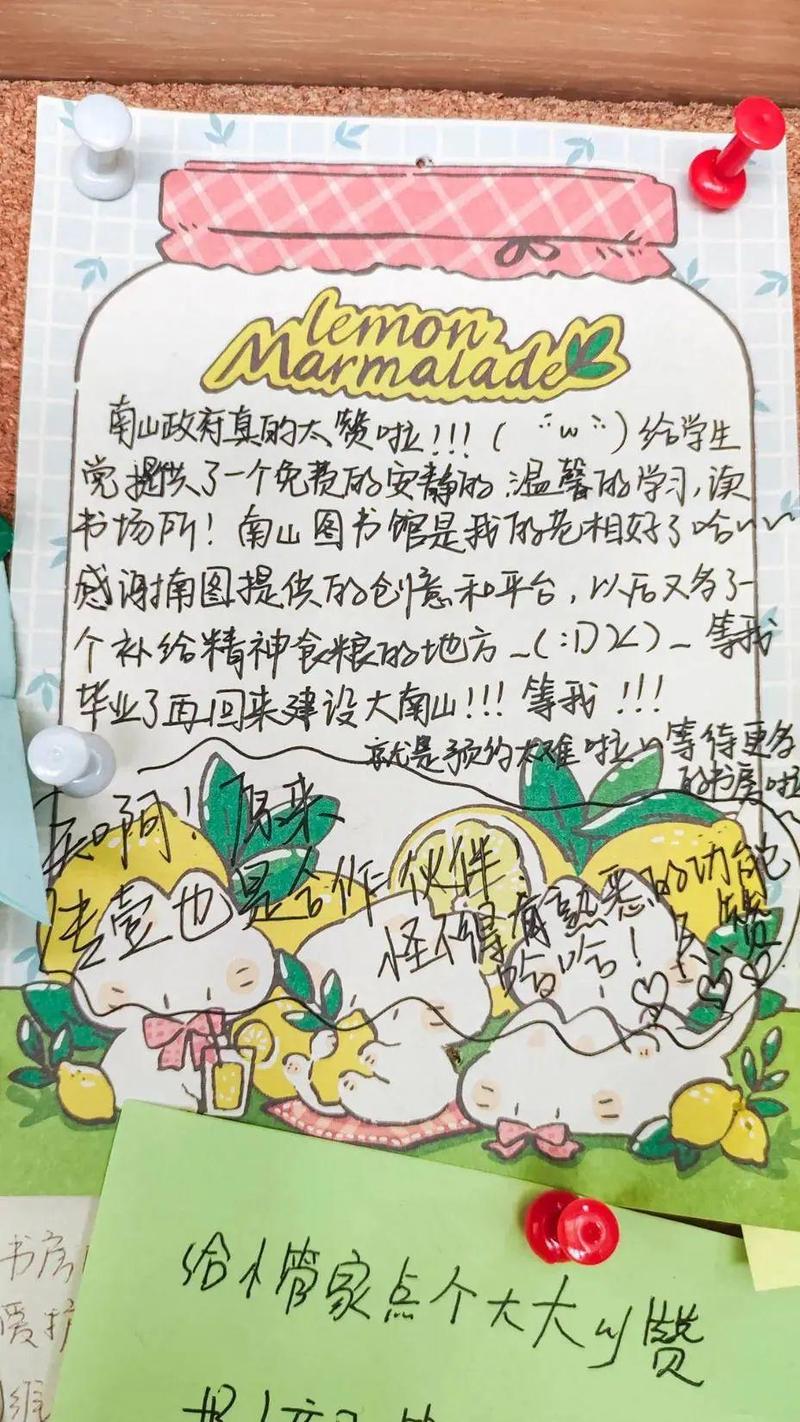 lemon
Marmalade
南山政府真的太赞啦!!!( ¨w¨ )给学生
党提供了一个免费的安静的温馨的学习,读
书场所!南山图书馆是我的老相好了哈~~
感谢南图提供的创意和平台,以后又多了一
个补给精神食粮的地方_(:D)X)_等我
毕业了再回来建设大南山!!!等我!!!
就是预约太难啦~等待更多
的书房啦~
天啊!原来
壹也是合作伙伴!
怪不得有熟悉的功能
哈哈!
赞
给小管家点个大大的赞
书房
爱护
维